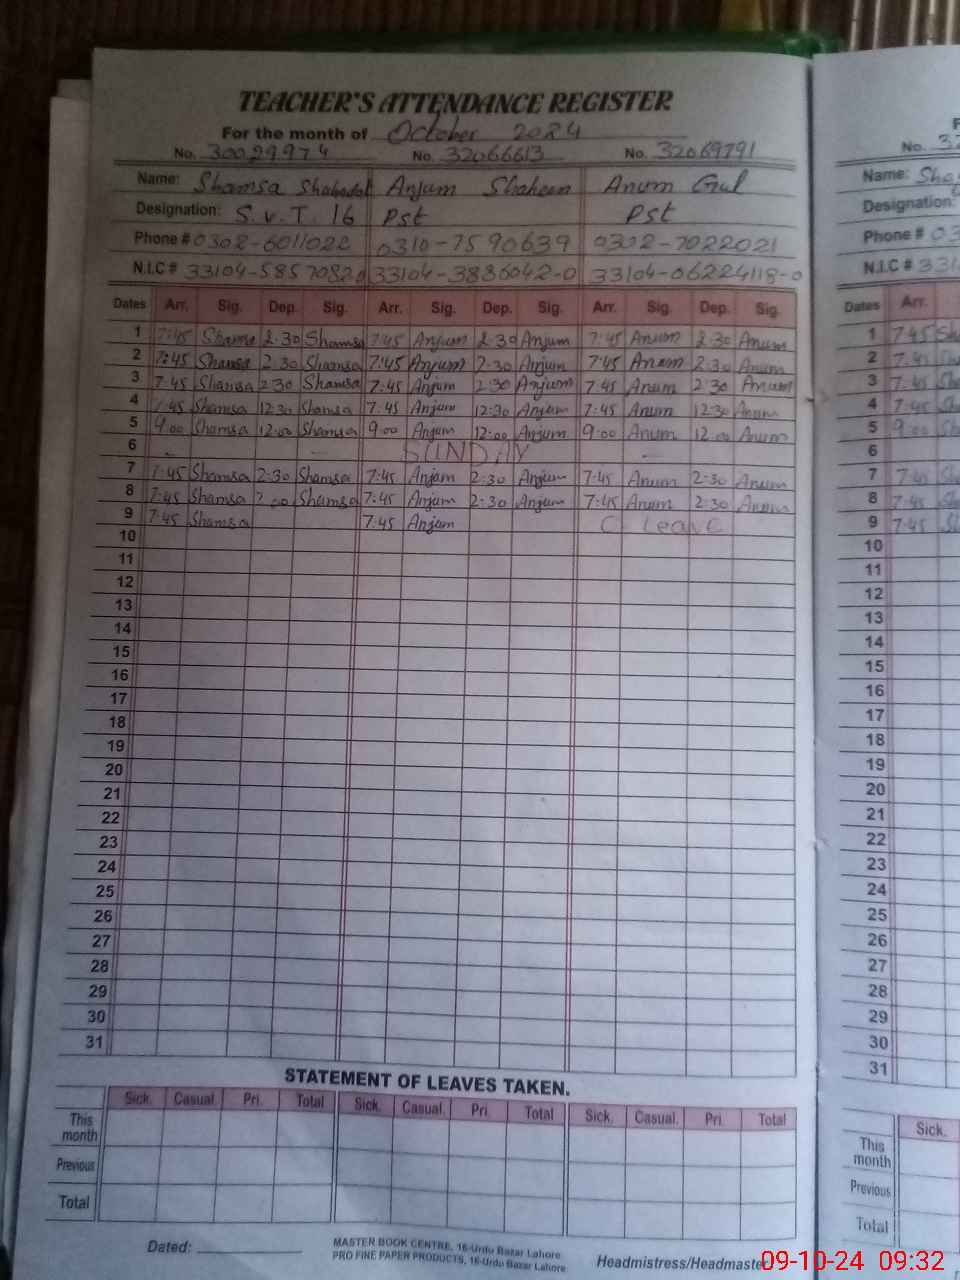 TEACHER'S ATTENDANCE REGISTER
For the month of October 2024
No. 30029974 No. 32066613 No. 32069791 No. 32
Name: Shamsa Anjum Shaheen Anum Gul Name: Sha
Designation: S.V.T. 16 Pst Pst Designation:
Phone # 0302-6011022 0310-7590639 0302-7022021 Phone # 03
N.I.C # 33104-5857082 33104-3836042-0 33104-06224118-0 N.I.C # 331
Dates Arr. Sig. Dep. Sig. Arr. Sig. Dep. Sig. Arr. Sig. Dep. Sig. Dates Arr.
1 7:45 Shamsa 2:30 Shamsa 7:45 Anjum 2:30 Anjum 7:45 Anum 2:30 Anum 1 7:45 Sh
2 7:45 Shamsa 2:30 Shamsa 7:45 Anjum 2:30 Anjum 7:45 Anum 2:30 Anum 2 7:45
3 7:45 Shamsa 2:30 Shamsa 7:45 Anjum 2:30 Anjum 7:45 Anum 2:30 Anum 3 7:45
4 7:45 Shamsa 12:30 Shamsa 7:45 Anjum 12:30 Anjum 7:45 Anum 12:30 Anum 4 7:45
5 9:00 Shamsa 12:00 Shamsa 9:00 Anjum 12:00 Anjum 9:00 Anum 12:00 Anum 5 9:00
6 SUNDAY 6
7 7:45 Shamsa 2:30 Shamsa 7:45 Anjum 2:30 Anjum 7:45 Anum 2:30 Anum 7 7:45
8 7:45 Shamsa Shamsa 7:45 Anjum 2:30 Anjum 7:45 Anum 2:30 Anum 8 7:45
9 7:45 Shamsa 7:45 Anjum C leave 9 7:45
10 10
11 11
12 12
13 13
14 14
15 15
16 16
17 17
18 18
19 19
20 20
21 21
22 22
23 23
24 24
25 25
26 26
27 27
28 28
29 29
30 30
31 31
STATEMENT OF LEAVES TAKEN.
Sick. Casual. Pri. Total Sick. Casual. Pri. Total Sick. Casual. Pri. Total Sick.
This month This month
Previous Previous
Total Total
Dated: MASTER BOOK CENTRE, 16-Urdu Bazar Lahore
PRO FINE PAPER PRODUCTS, 16-Urdu Bazar Lahore
Headmistress/Headmaster
09-10-24 09:32